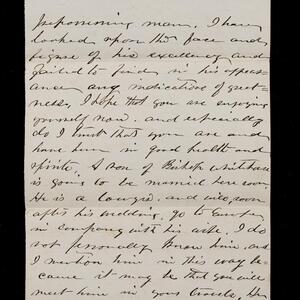 prepossessing man. I have
looked upon the face and
figure of his excellency and
failed to find in his appear-
ance any indications of great-
ness. I hope that you are enjoying
yourself now. and especially
do I trust that you are and
have been in good health and
spirits. A son of Bishop
is going to be married here soon
He is a lawyer. and will soon
after his wedding, go to Europe
in company with his wife. I do
not personally know him, and
I mention him in this way be-
cause it may be that you will
meet him in your travels.